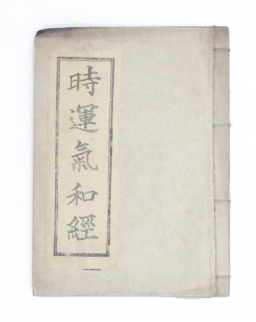 時運氣和經